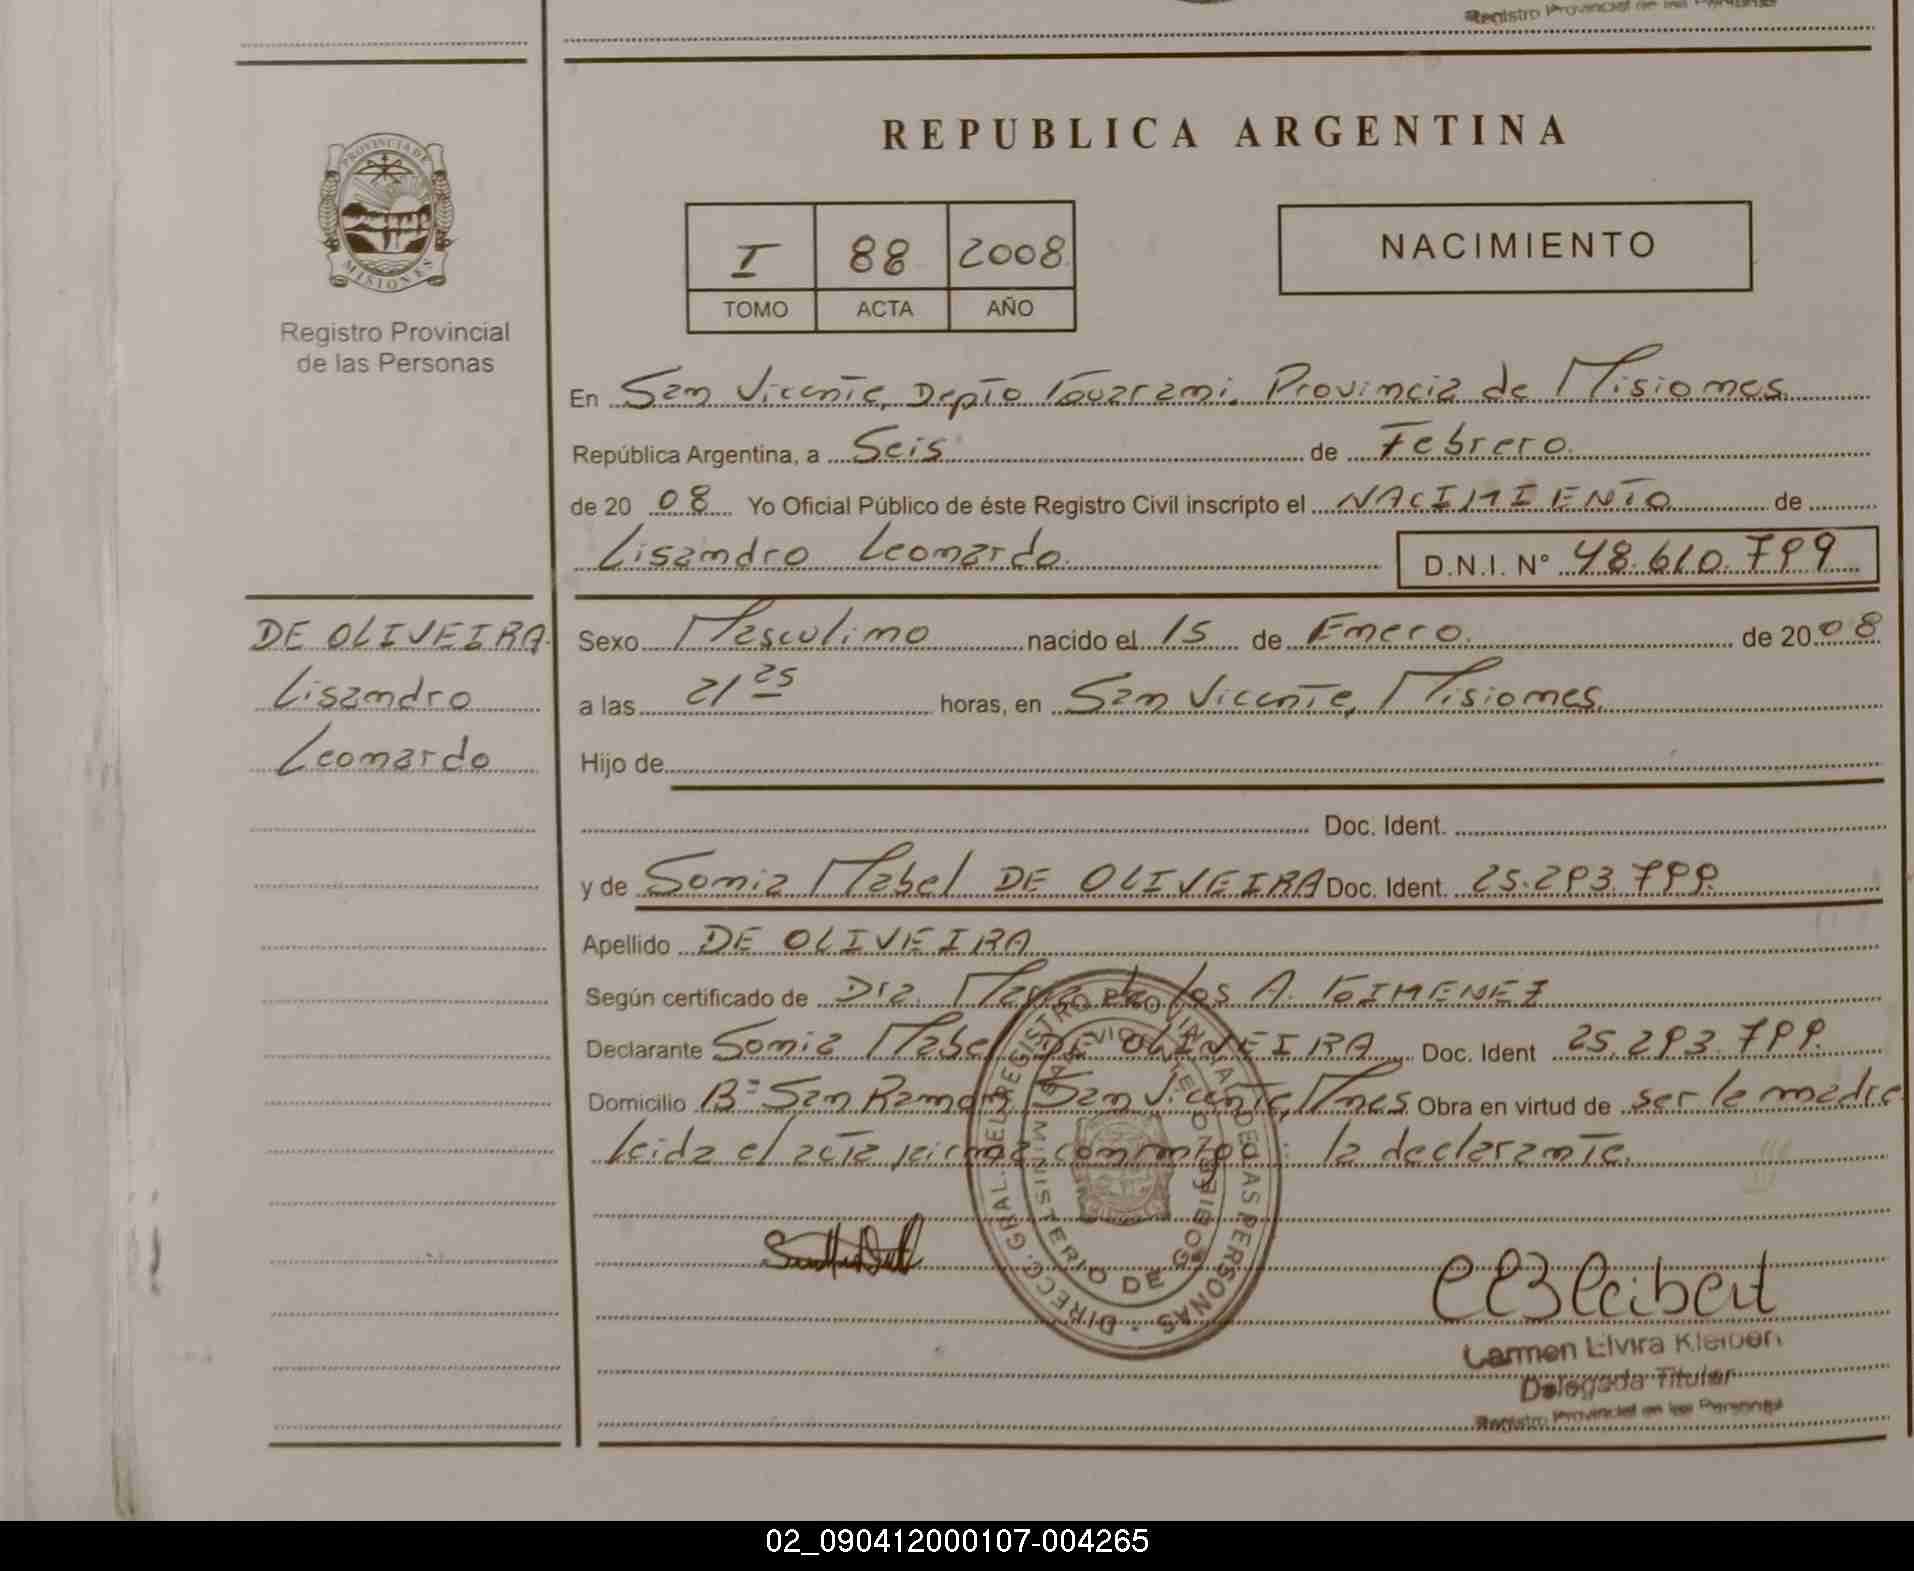 Registro Provincial de las Personas
REPUBLICA ARGENTINA
PROVINCIA DE
MISIONES
Registro Provincial
de las Personas
I 88 2008
TOMO ACTA AÑO
NACIMIENTO
En San Vicente, Depto Guarani. Provincia de Misiones.
República Argentina, a Seis de Febrero.
de 20 08 Yo Oficial Público de éste Registro Civil inscripto el NACIMIENTO de
Lisandro Leonardo. D.N.I. Nº 48.610.799
DE OLIVEIRA
Lisandro
Leonardo
Sexo Masculino nacido el 15 de Enero. de 2008
a las 21 25 horas, en San Vicente, Misiones.
Hijo de
Doc. Ident.
y de Sonia Mabel DE OLIVEIRA Doc. Ident. 25.293.799.
Apellido DE OLIVEIRA
Según certificado de Dra. Maria de los A. GIMENEZ
Declarante Sonia Mabel DE OLIVEIRA Doc. Ident 25.293.799.
Domicilio Bº San Ramon, San Vicente, Mnes Obra en virtud de ser la madre
leida el acta firma conmigo: la declarante.
DIRECC. GRAL. DEL REGISTRO PROVINCIAL DE LAS PERSONAS
MINISTERIO DE GOBIERNO
Carmen Elvira Kleibert
Delegada Titular
Registro Provincial de las Personas
02_090412000107-004265